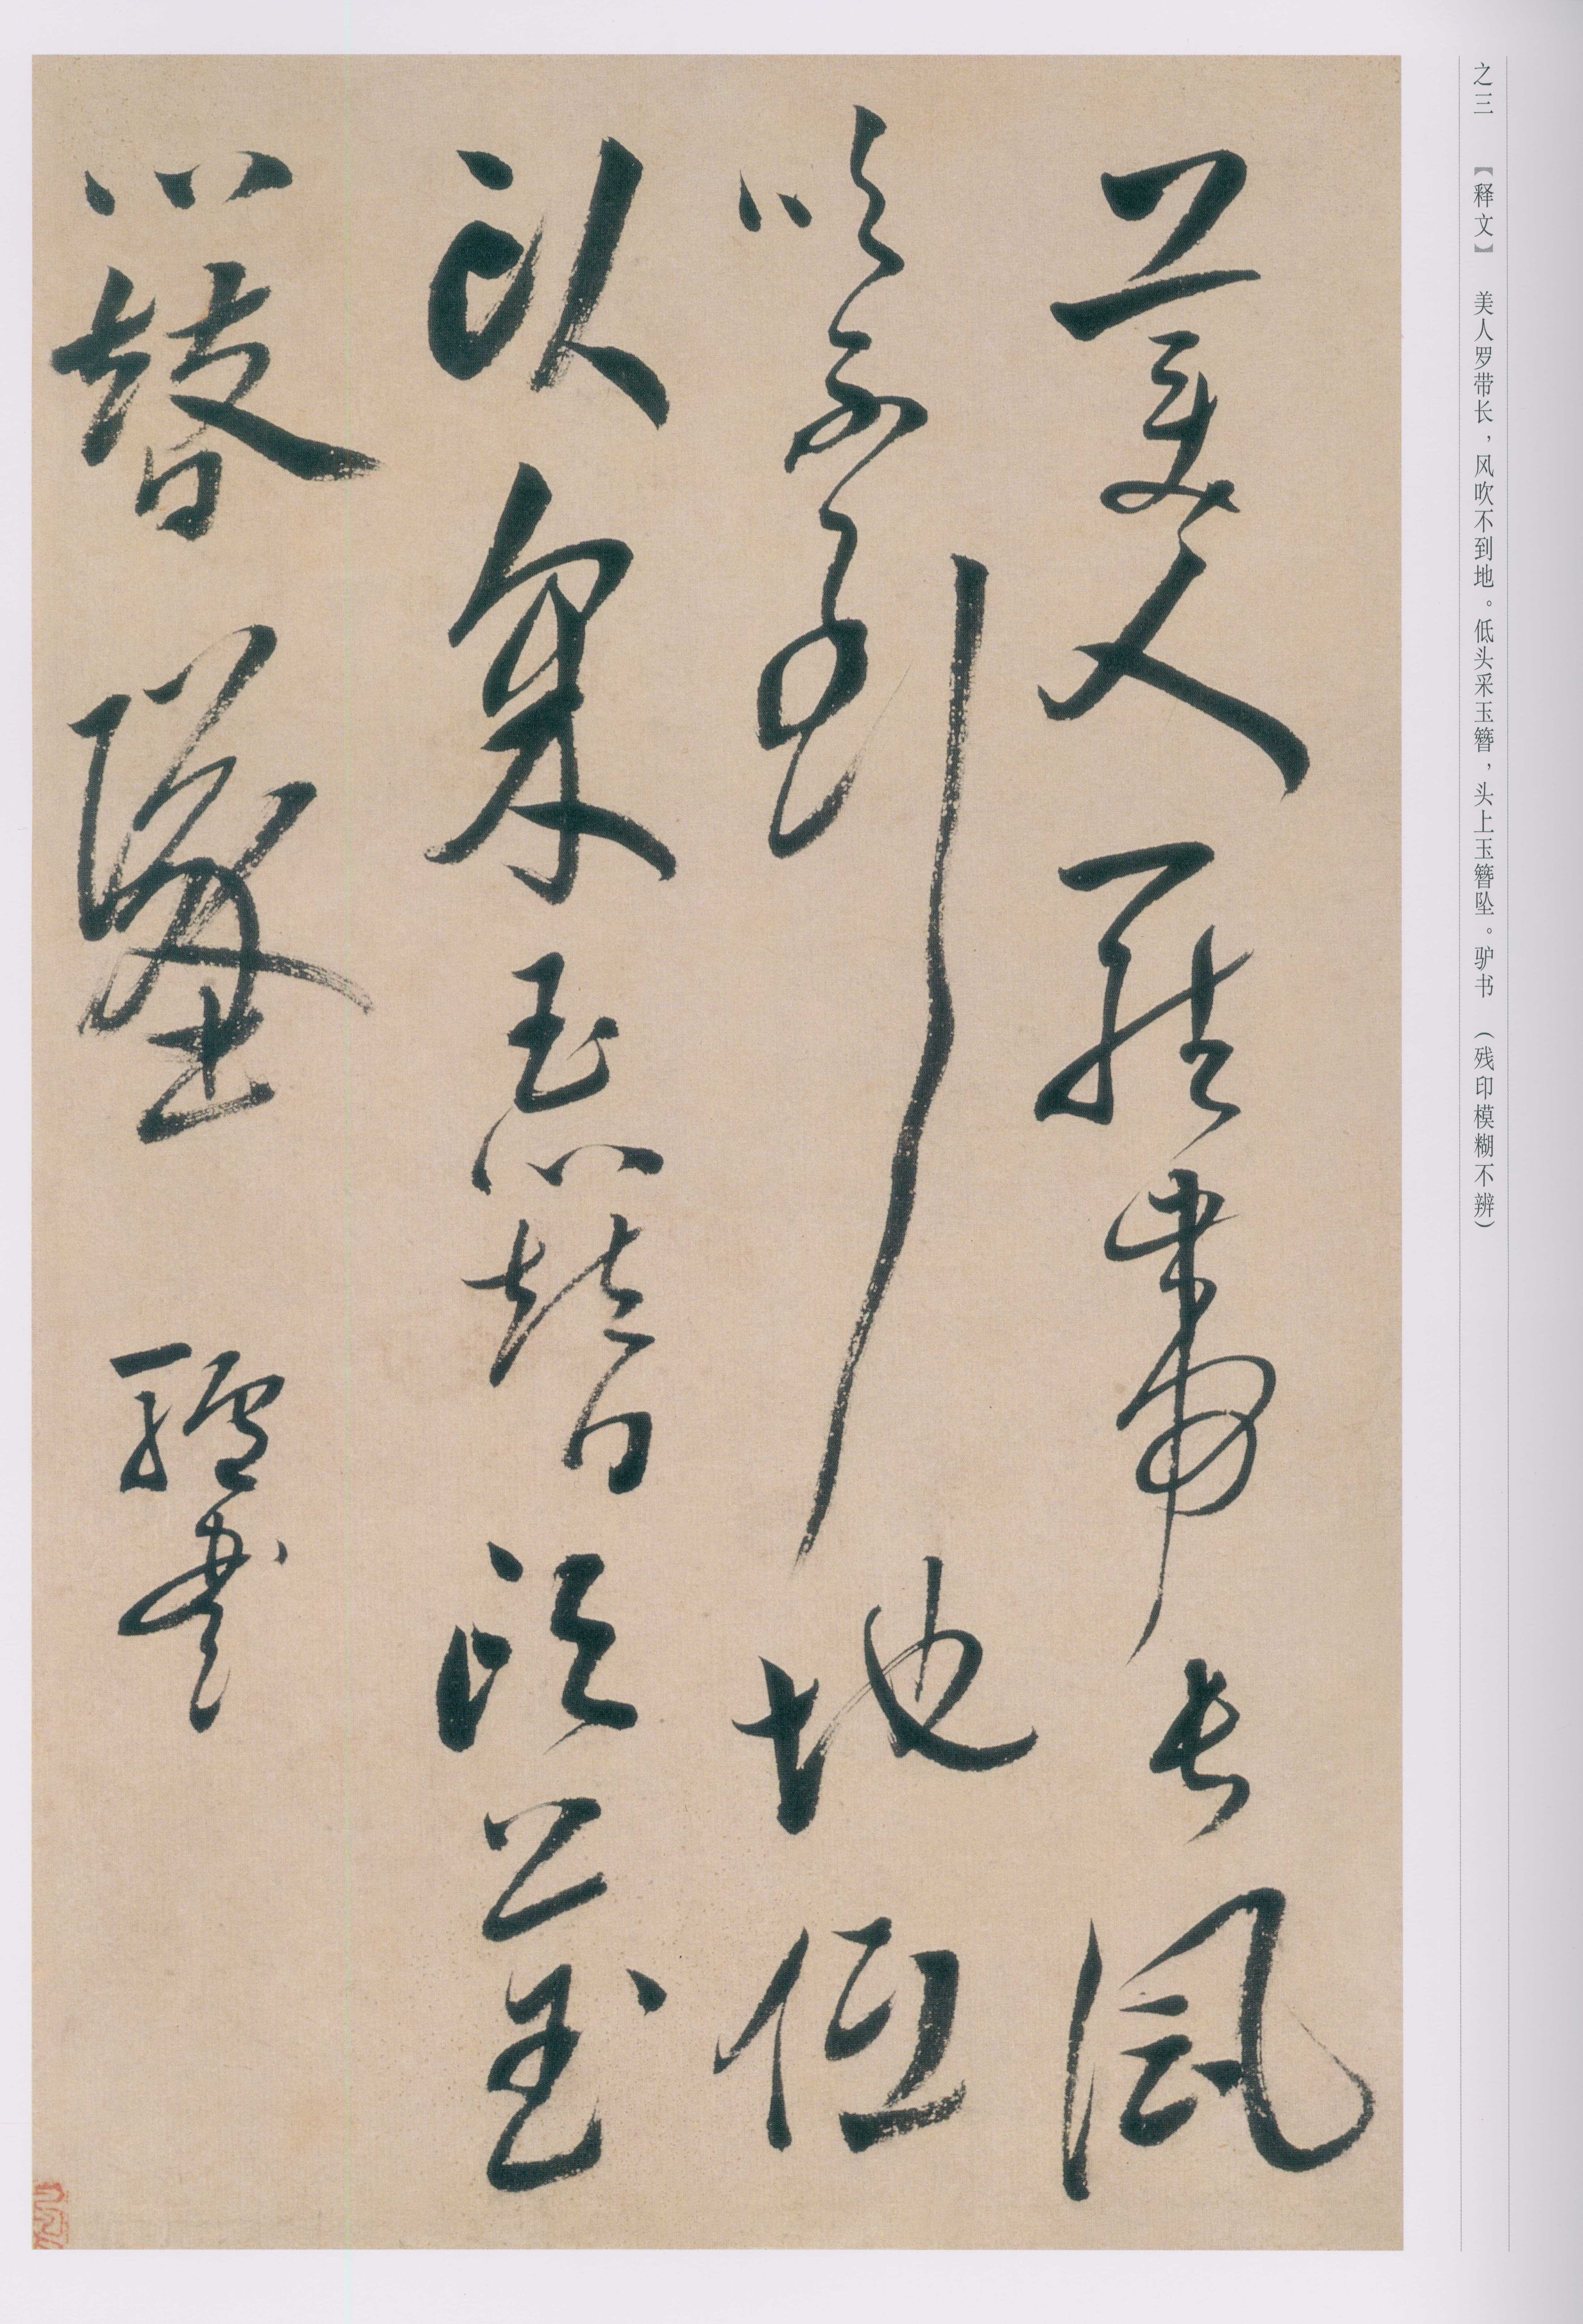 之三 【释文】 美人罗带长，风吹不到地。低头采玉簪，头上玉簪坠。驴书 （残印模糊不辨）
美人羅帶長風
吹不到地低
頭采玉簪頭上玉
簪墜 驢書